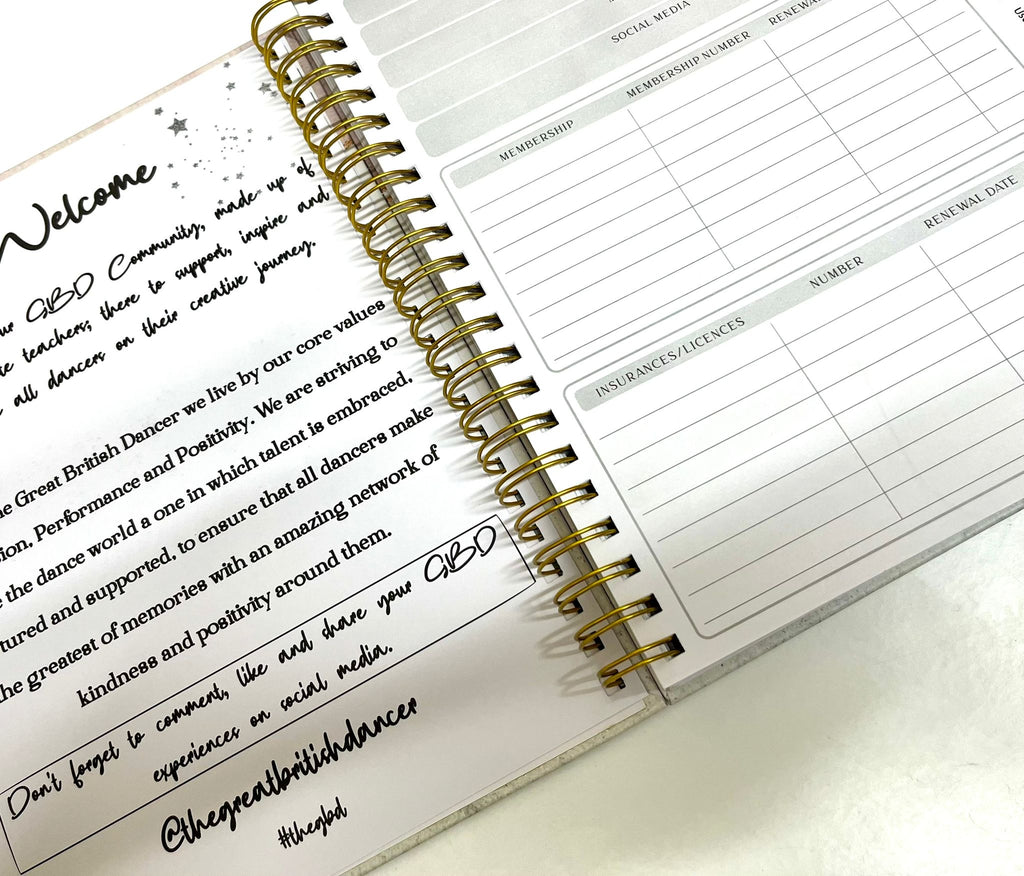 Welcome
GBD Community, made up of
teachers; there to support, inspire and
all dancers on their creative journey.
Great British Dancer we live by our core values
Performance and Positivity. We are striving to
the dance world a one in which talent is embraced,
and supported, to ensure that all dancers make
the greatest of memories with an amazing network of
kindness and positivity around them.
Don't forget to comment, like and share your GBD
experiences on social media.
@thegreatbritishdancer
#thegbd
SOCIAL MEDIA
MEMBERSHIP MEMBERSHIP NUMBER
INSURANCES/LICENCES NUMBER RENEWAL DATE